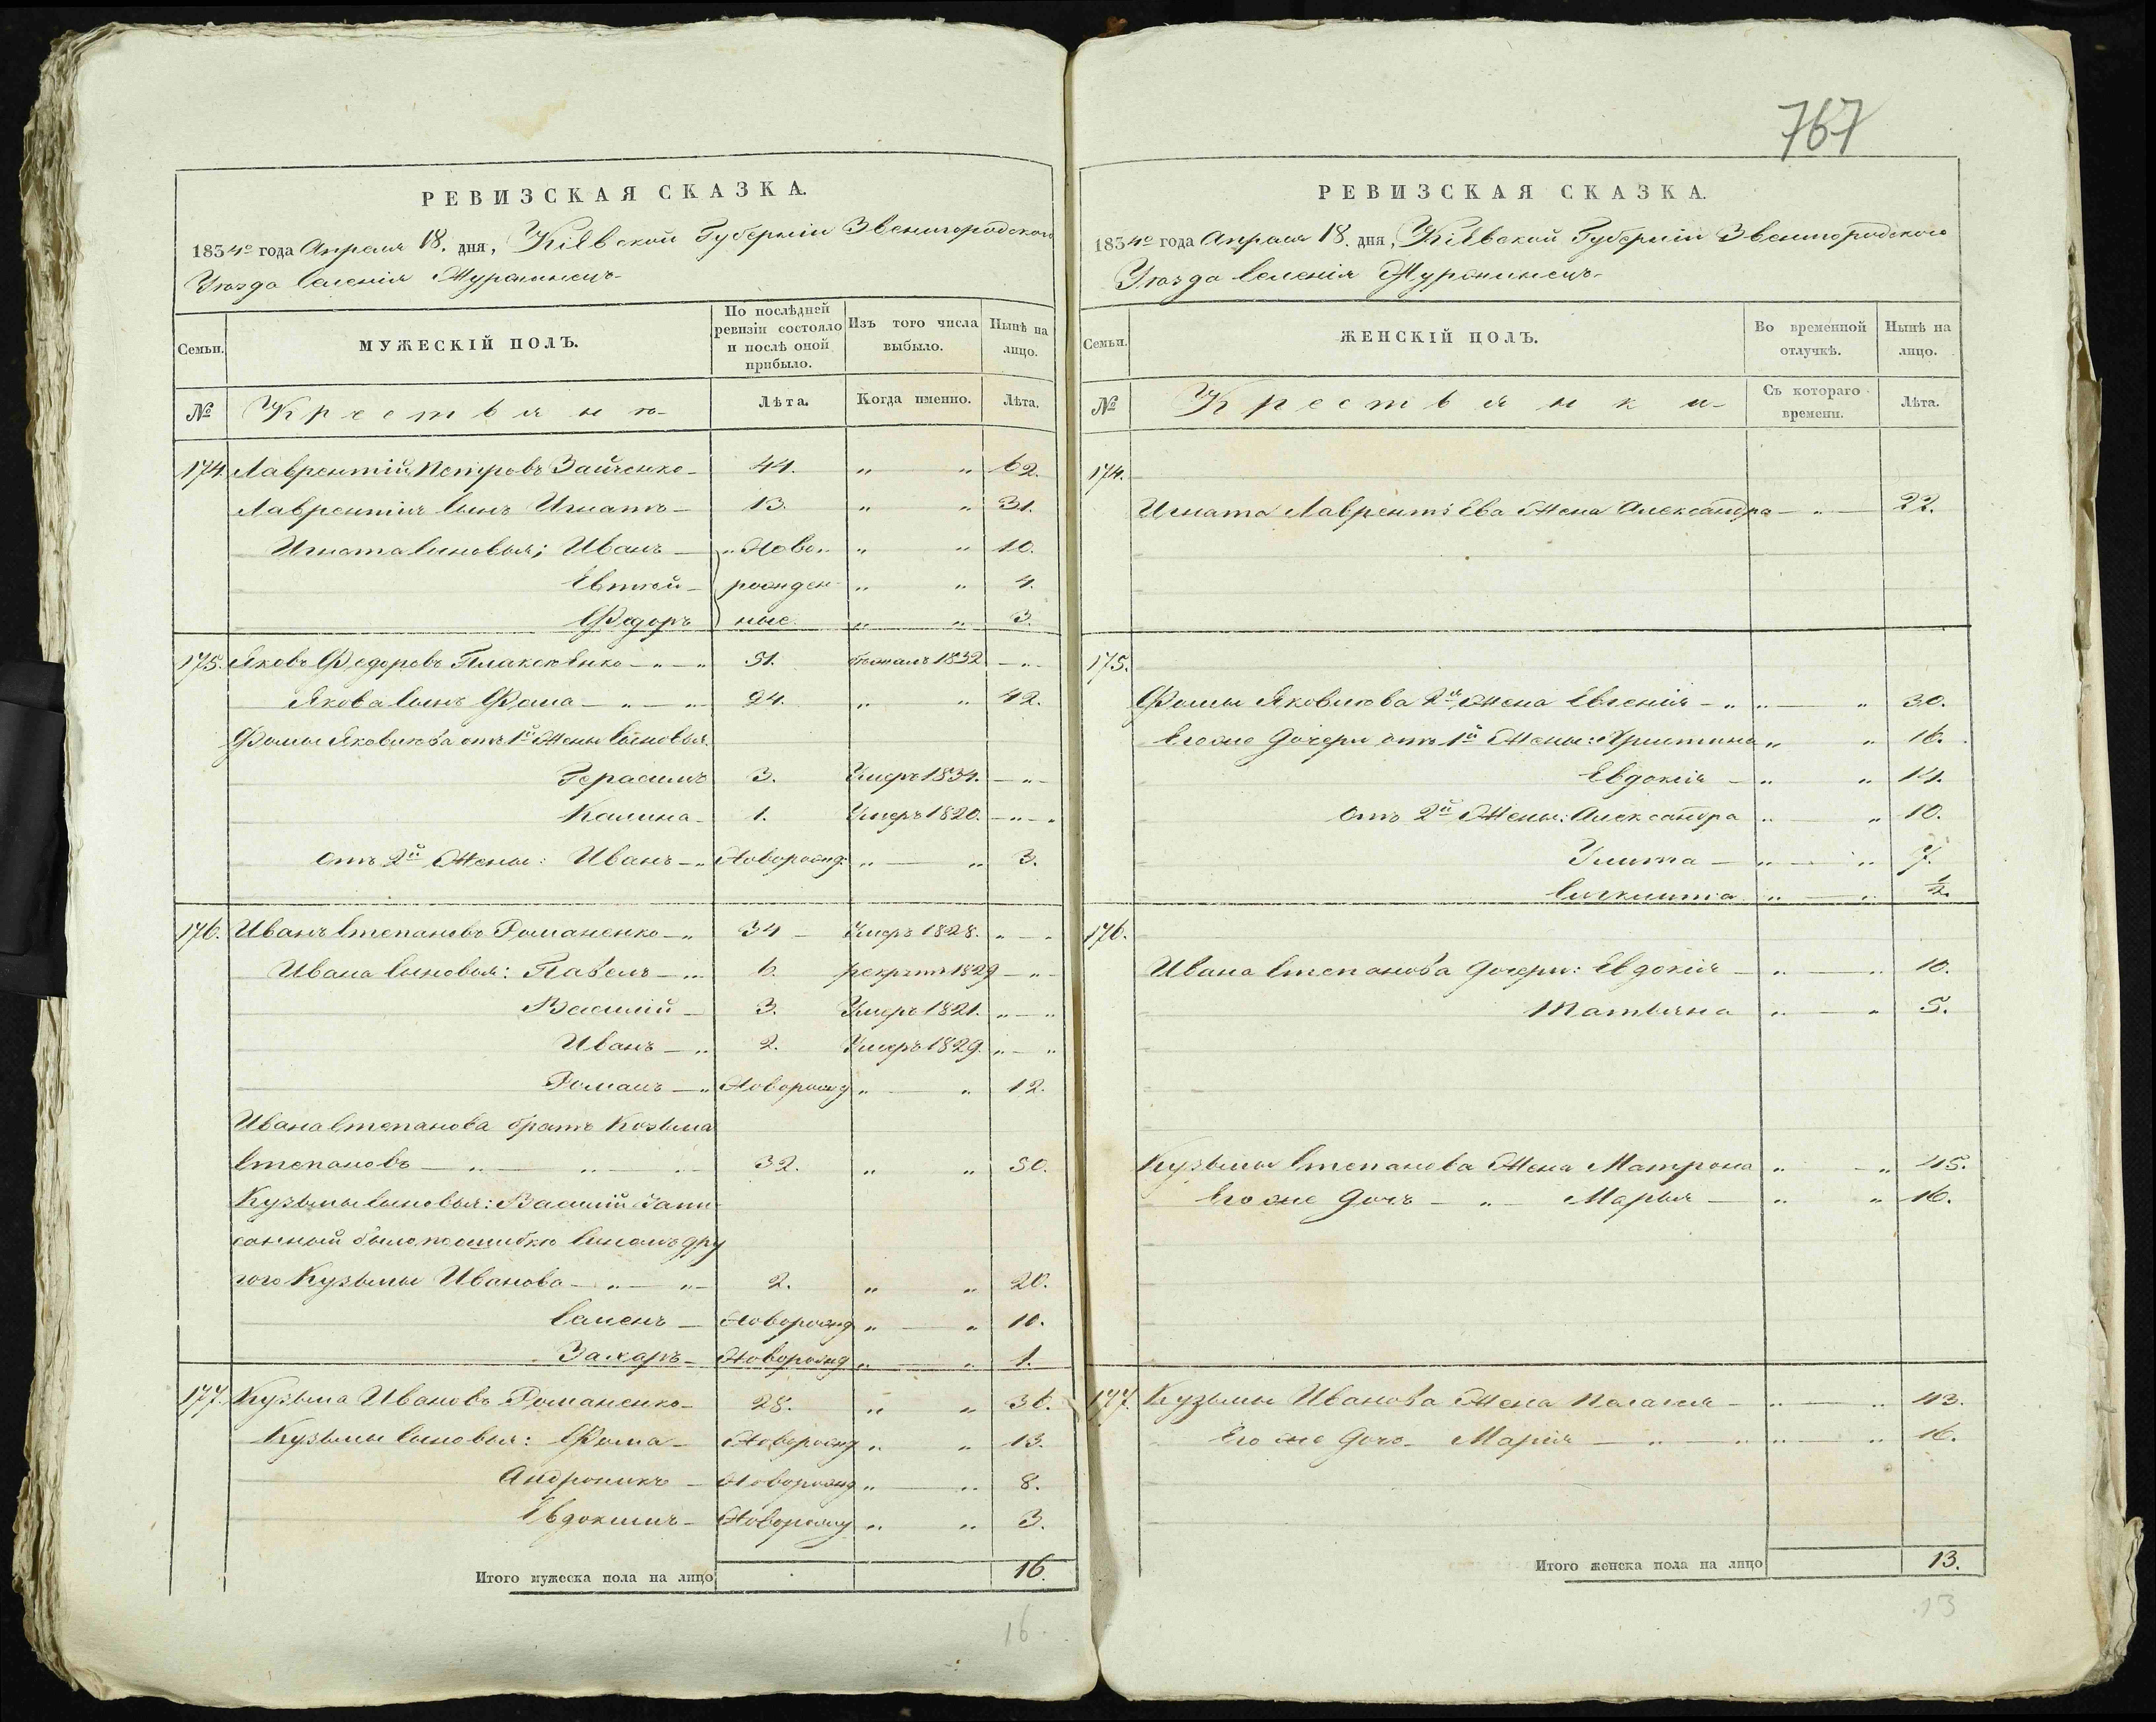 767
РЕВИЗСКАЯ СКАЗКА.
1834го года Апреля 18. дня, Кіевской Губерніи Звенигородского
Уезда Селенія Журжинець
Семьи.
МУЖЕСКІЙ ПОЛЪ.
По послѣдней ревизіи состояло и послѣ оной прибыло.
Изъ того числа выбыло.
Нынѣ на лицо.
№ Крестьяне Лѣта. Когда именно. Лѣта.
174. Лаврентій Петровъ Зайченко 44. " " 62.
Лаврентія Сынъ Игнатъ 13. " " 31.
Игната Сыновья; Иванъ "Ново" " " 10.
Евтей рожден " " 4.
Федоръ ные " " 3.
175. Яковъ Федоровъ 51. бежалъ 1832 "
Якова Сынъ Фома 24. " " 42.
Фомы Яковлева отъ 1й Жены Сыновья
Герасимъ 3. Умеръ 1834. "
Калина 1. Умеръ 1820. "
отъ 2й Жены: Иванъ Коворожд. " " 3.
176. Иванъ Степановъ Романенко 34 Умеръ 1828. "
Ивана Сыновья: Павелъ 6. рекрутъ 1829 "
Василій 3. Умеръ 1821. "
Иванъ 2. Умеръ 1829. "
Романъ Новорожд " " 12.
Ивана Степанова братъ Козьма
Степановъ 32. " " 50.
Кузьмы Сыновья: Василій запи
санный было по ошибке Сыномъ дру
гого Кузьмы Иванова 2. " " 20.
Семенъ Новорожд " " 10.
Захаръ Новорожд " " 1.
177. Кузьма Ивановъ Романенко 28. " " 36.
Кузьмы Сыновья: Фома Новорожд " " 13.
Андроникъ Новорожд " " 8.
Евдокимъ Новорожд " " 3.
Итого мужеска пола на лицо 16.
16.
РЕВИЗСКАЯ СКАЗКА.
1834го года Апреля 18. дня, Кіевской Губерніи Звенигородского
Уезда Селенія Журжинець
Семьи.
ЖЕНСКІЙ ПОЛЪ.
Во временной отлучкѣ.
Нынѣ на лицо.
№ Крестьянки Съ котораго времени. Лѣта.
174.
Игната Лаврентіева Жена Александра " 22.
175.
Фомы Яковлева 2я Жена Евгенія " " 30.
Его же Дочери отъ 1й Жены: Христина " " 16.
Евдокія " " 14.
отъ 2й Жены: Александра " " 10.
Улита " " 7.
" " ½.
176.
Ивана Степанова Дочери: Евдокія " " 10.
Татьяна " " 5.
Кузьмы Степанова Жена Матрона " " 45.
Его же Дочь " Марья " " 16.
177. Кузьмы Иванова Жена Палагея " " 43.
Его же Дочь Марія " " 16.
Итого женска пола на лицо 13.
13